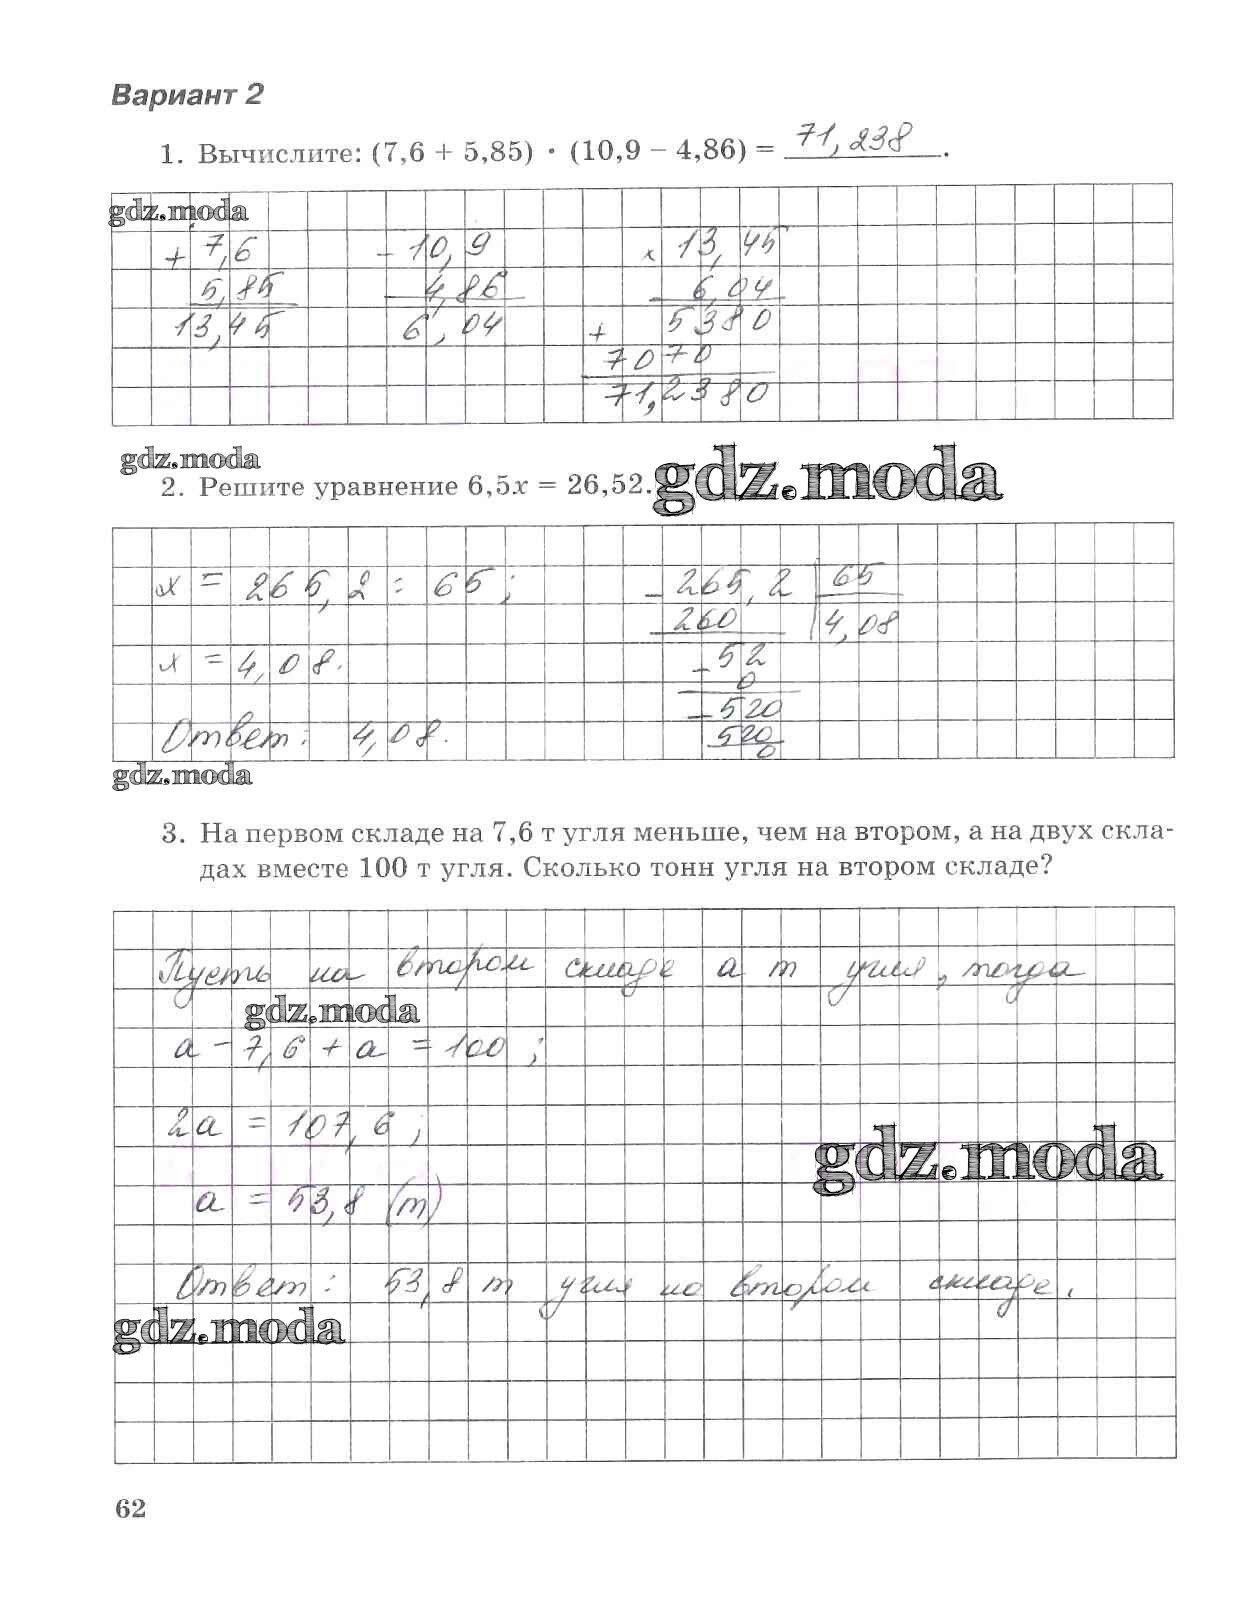 Вариант 2
1. Вычислите: (7,6 + 5,85) · (10,9 – 4,86) = 71,238.
gdz.moda
+ 7,6 – 10,9 × 13,45
5,85 4,86 6,04
13,45 6,04 + 5380
7070
71,2380
gdz.moda
2. Решите уравнение 6,5x = 26,52.
gdz.moda
x = 265,2 : 65 ; – 265,2 65
260 4,08
x = 4,08. – 52
0
– 520
Ответ: 4,08. 520
0
gdz.moda
3. На первом складе на 7,6 т угля меньше, чем на втором, а на двух скла-
дах вместе 100 т угля. Сколько тонн угля на втором складе?
Пусть на втором складе a т угля, тогда
gdz.moda
a – 7,6 + a = 100 ;
2a = 107,6 ;
gdz.moda
a = 53,8 (т)
Ответ: 53,8 т угля на втором складе.
gdz.moda
62